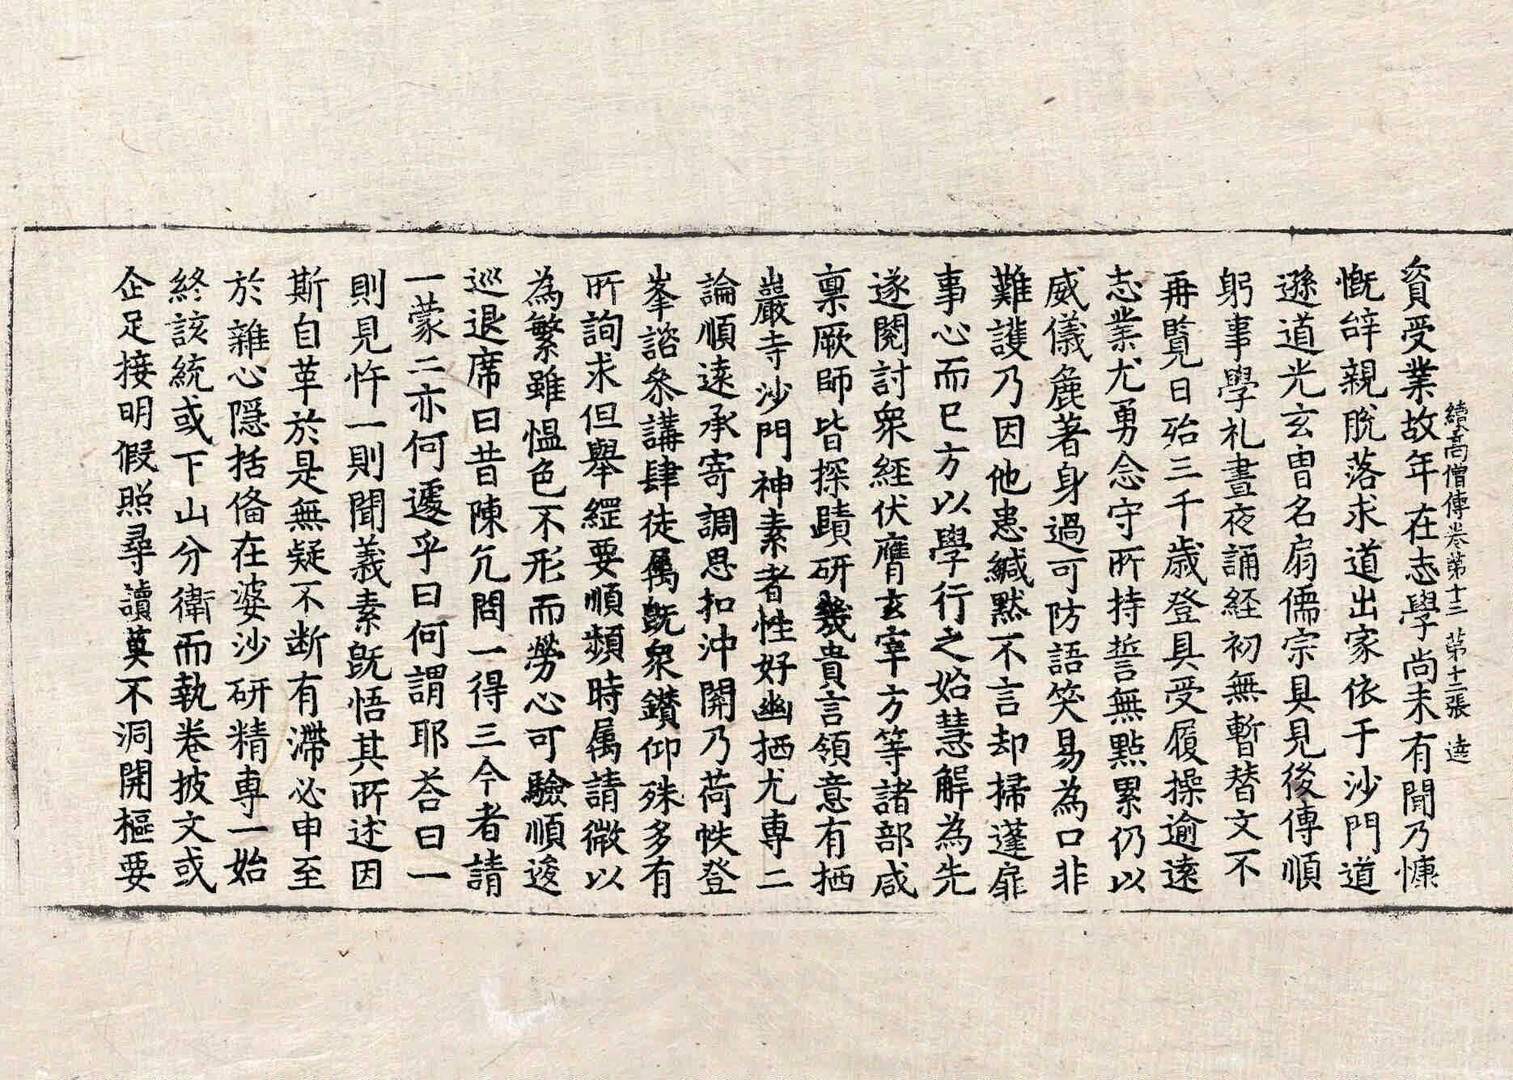 續高僧傳卷第十三 第十二張 逵
資受業故年在志學尚未有聞乃慷
慨辝親脫落求道出家依于沙門道
遜道光玄胄名扇儒宗具見後傳順
躬事學礼晝夜誦經初無暫替文不
再覽日殆三千歲登具受履操逾遠
志業尤勇念守所持誓無點累仍以
威儀麁著身過可防語笑易為口非
難護乃因他恚緘默不言却掃蓬扉
事心而已方以學行之始慧解為先
遂閱討衆經伏膺玄宰方等諸部咸
禀厥師皆探賾研幾貴言領意有栖
巖寺沙門神素者性好幽栖尤專二
論順遠承寄調思扣沖開乃荷帙登
峯諮叅講肆徒属旣衆鑚仰殊多有
所詢求但舉綱要順頻時属請微以
為繁雖愠色不形而勞心可驗順逡
巡退席曰昔陳亢問一得三今者請
一蒙二亦何遽乎曰何謂耶荅曰一
則見忤一則聞義素旣悟其所述因
斯自革於是無疑不断有滯必申至
於雜心隱括俻在婆沙研精專一始
終該統或下山分衛而執卷披文或
企足接明假照尋讀莫不洞開樞要